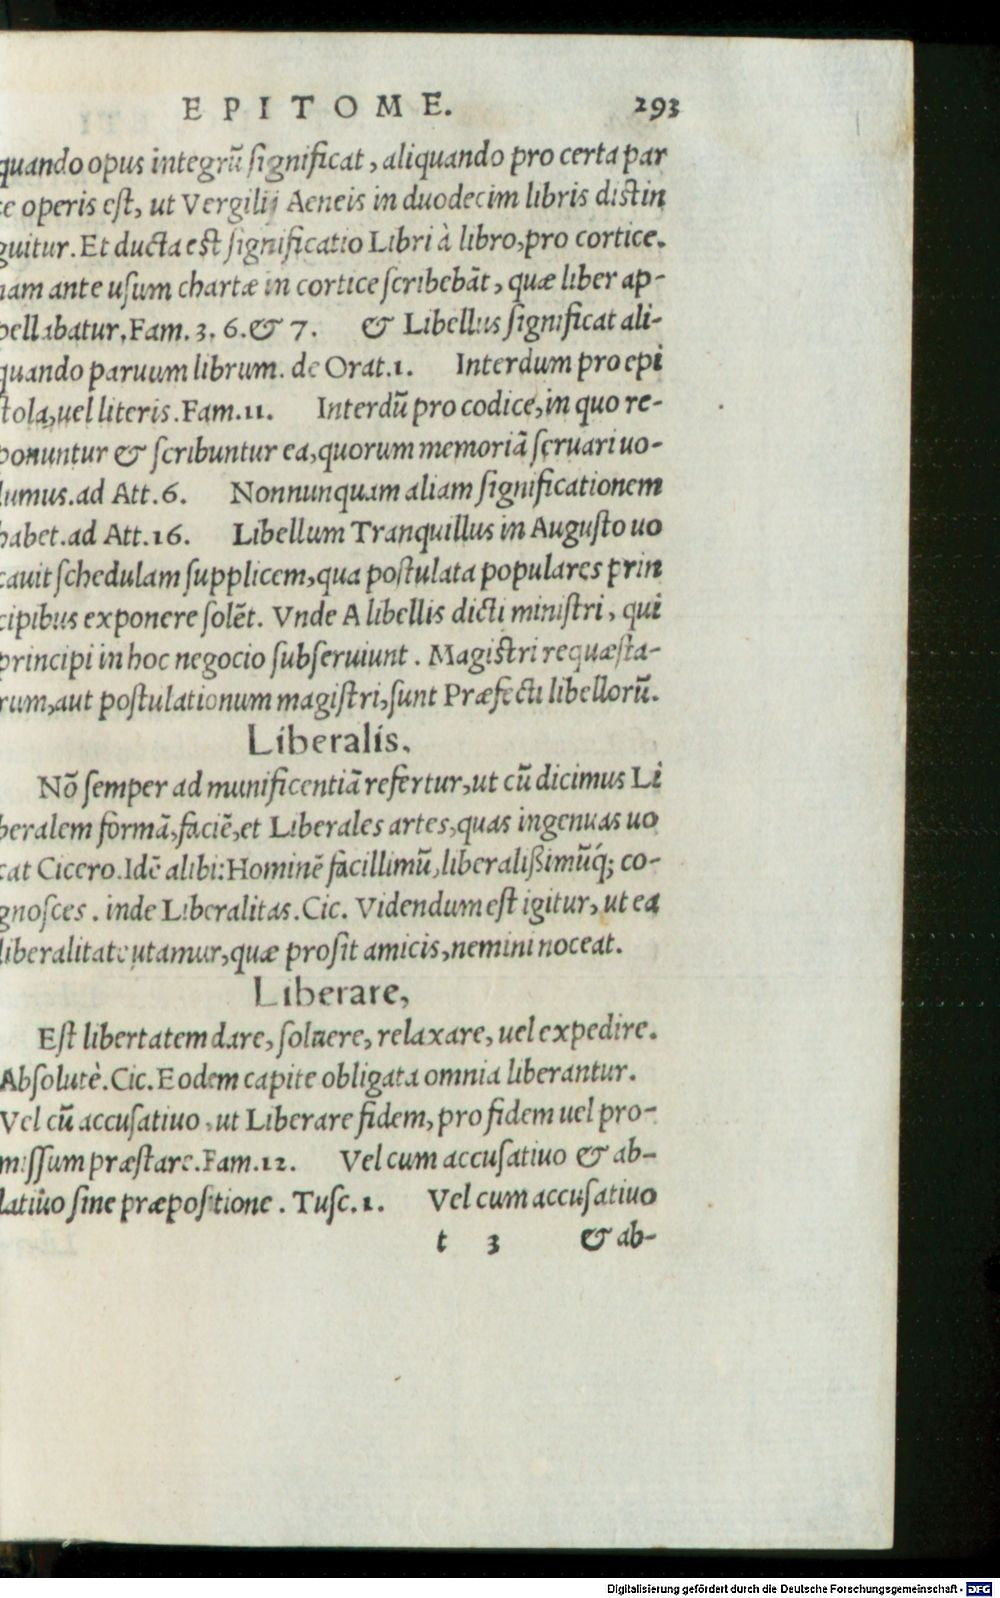 EPITOME. 293
quando opus integrũ significat, aliquando pro certa par
te operis est, ut Vergilij Aeneis in duodecim libris distin
guitur. Et ducta est significatio Libri à libro, pro cortice.
nam ante usum chartæ in cortice scribebãt, quæ liber ap-
pellabatur. Fam. 3. 6. & 7. & Libellus significat ali-
quando paruum librum. de Orat. 1. Interdum pro epi
stola, uel literis. Fam. 11. Interdũ pro codice, in quo re-
ponuntur & scribuntur ea, quorum memoriã seruari uo-
lumus. ad Att. 6. Nonnunquam aliam significationem
habet. ad Att. 16. Libellum Tranquillus in Augusto uo
cauit schedulam supplicem, qua postulata populares prin
cipibus exponere solẽt. Vnde A libellis dicti ministri, qui
principi in hoc negocio subseruiunt. Magistri requæsta-
rum, aut postulationum magistri, sunt Præfecti libellorũ.
Liberalis.
Nõ semper ad munificentiã refertur, ut cũ dicimus Li
beralem formã, faciẽ, et Liberales artes, quas ingenuas uo
cat Cicero. Idẽ alibi: Hominẽ facillimũ, liberalißimũq́; co-
gnosces. inde Liberalitas. Cic. Videndum est igitur, ut ea
liberalitate utamur, quæ prosit amicis, nemini noceat.
Liberare,
Est libertatem dare, soluere, relaxare, uel expedire.
Absolutè. Cic. Eodem capite obligata omnia liberantur.
Vel cũ accusatiuo, ut Liberare fidem, pro fidem uel pro-
missum præstare. Fam. 12. Vel cum accusatiuo & ab-
latiuo sine præpositione. Tusc. 1. Vel cum accusatiuo
t 3 & ab-
Digitalisierung gefördert durch die Deutsche Forschungsgemeinschaft - DFG